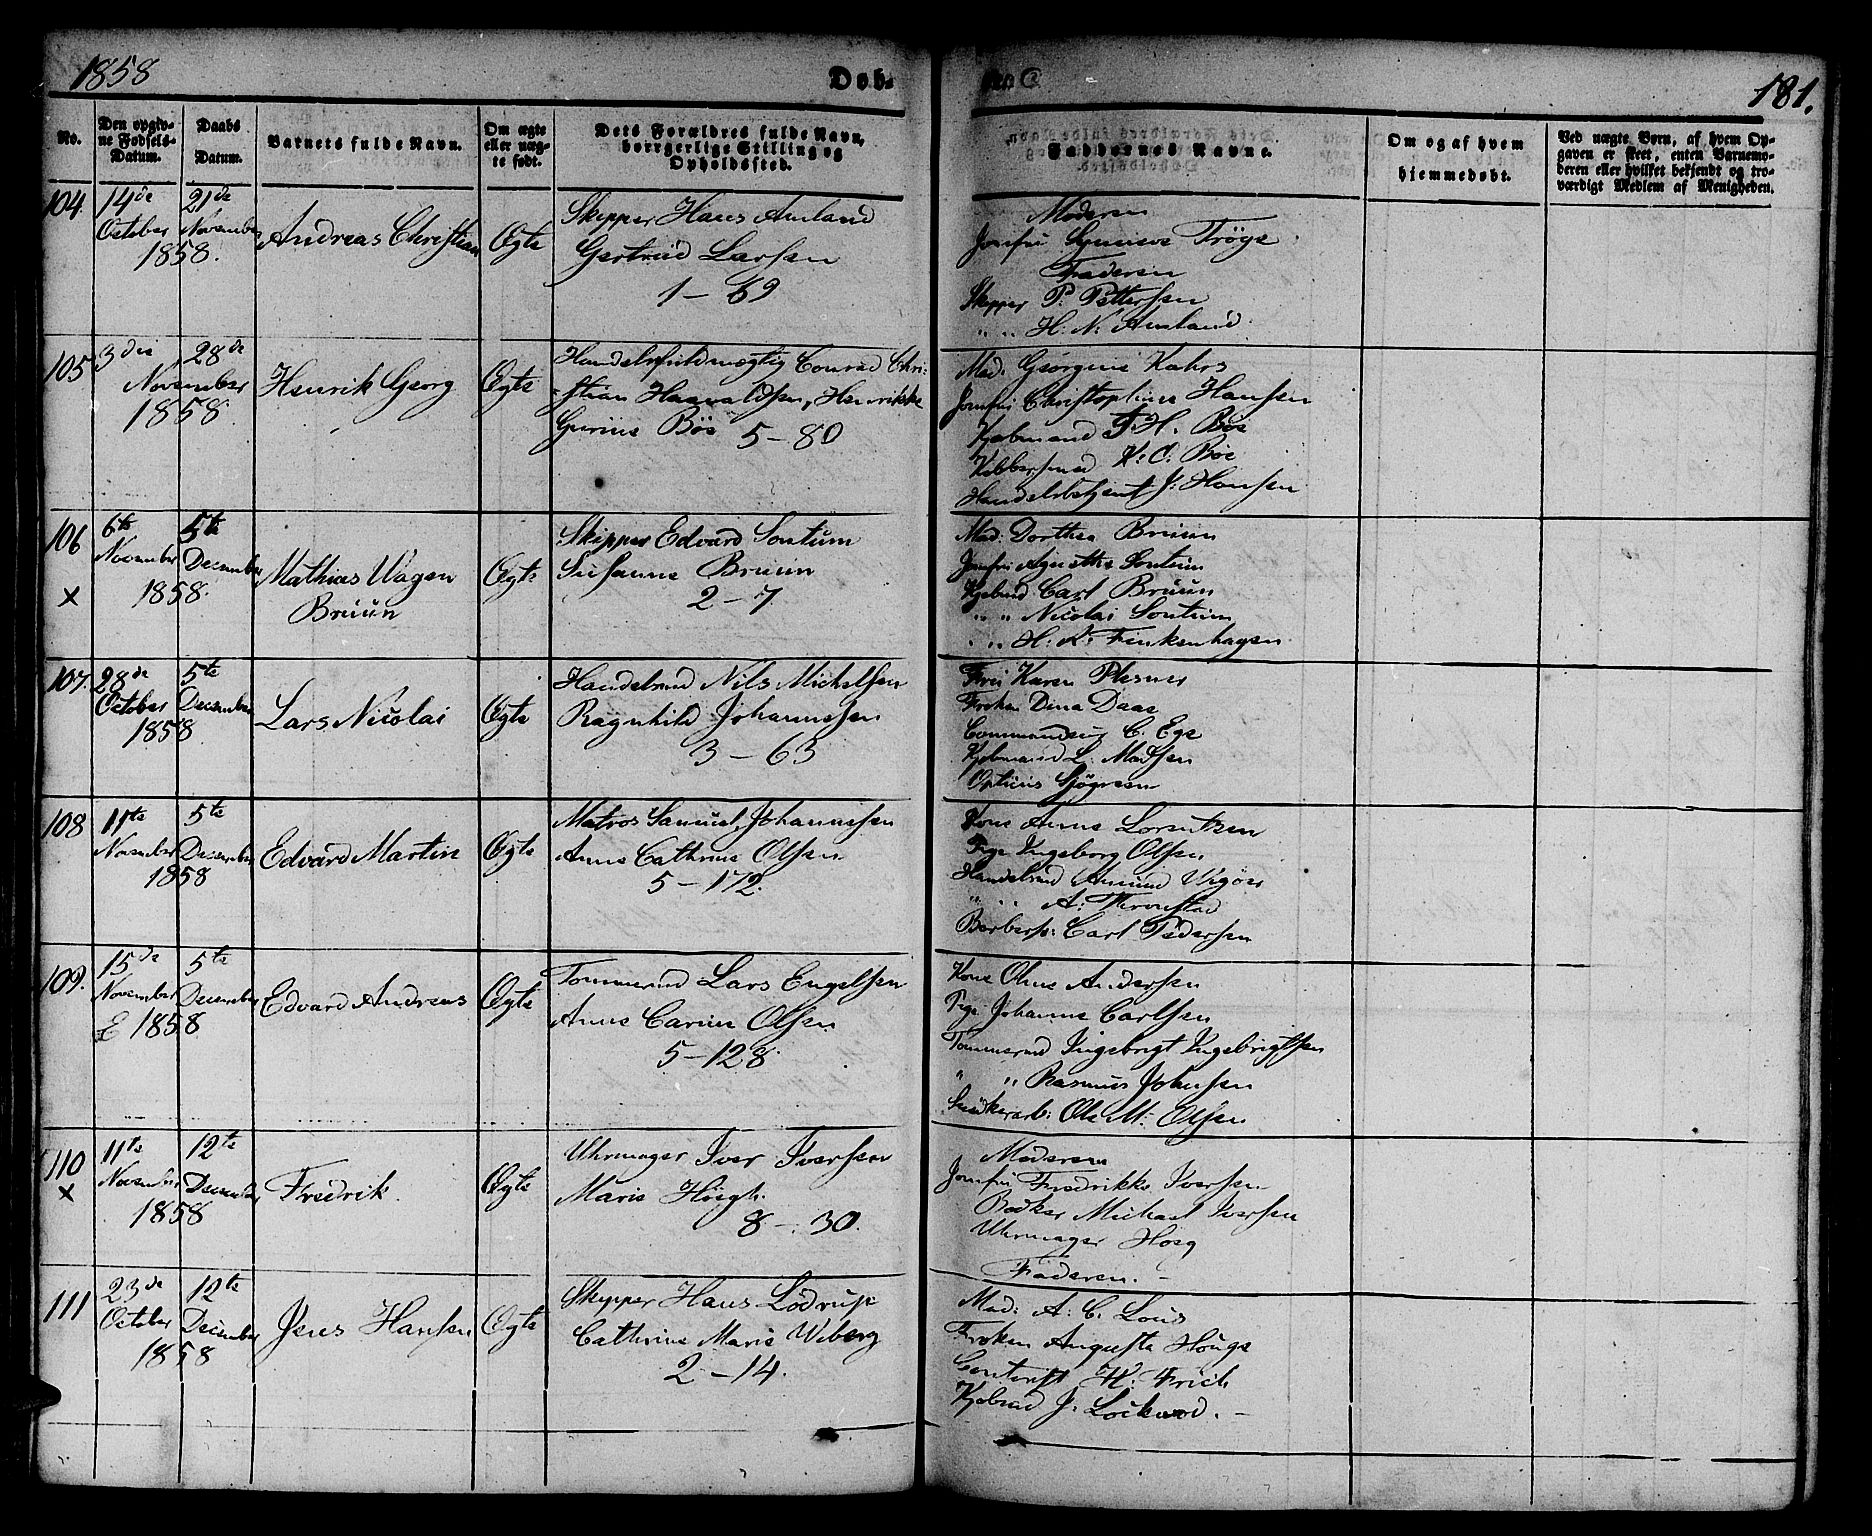 1858
Døb-
181.
No.
Den opgiv-
ne Fødsels-
Datum.
Daabs
Datum.
Barnets fulde Navn.
Om ægte
eller uæg-
te født.
Dets Forældres fulde Navn,
borgerlige Stilling og
Opholdssted.
Faddernes Navne.
Om og af hvem
hjemmedøbt.
Ved uægte Børn, af hvem Op-
gaven er skeet, enten Barnemo-
deren eller hvilket bekjendt og tro-
værdigt Medlem af Menigheden.
104
14de
October
21de
November
1858.
Andreas Christian
Ægte
Skipper Hans Amland
Gertrud Larsen
1-69
Moderen
Jomfru Tröge
Faderen
Skipper P. Pettersen
" " H. N. Amland
105
3die
28de
November
1858.
Henrik Georg
Ægte
Handelsfuldmægtig Conrad Chri-
stian Haavaldsen, Henrikke
Gurine Böe 5-80
Mad. Georgine Kahrs
Jomfru Christophine Hansen
Kjøbmand H. Böe
Kobbersmed K. C. Böe
Handelsbetjent J. Hansen
106
x
6te
November
5te
December
1858.
Mathias Wagen
Bruun
Ægte
Skipper Edvard Sontum
Susanne Bruun
2-7
Mad: Dorthea Bruun
Jomfru Agnethe Sontum
Kjøbmd Carl Bruun
" " Nicolai Sontum
" " H. K. Finkenhagen
107.
28de
October
5te
December
1858
Lars Nicolai
Ægte
Handelsmd Nils Michelsen
Ragnhild Johannesen
3-63
Fru Karen Plesner
Frøken Dina Daae
C. Ege
Kjøbmand L. Madsen
Opticus Sjögreen
108
11te
November
5te
December
1858
Edvard Martin
Ægte
Matros Samuel Johannesen
Anne Cathrine Olsen
5-172.
Kone Anne Lorentzen
Pige Ingeborg Olsen
Handelsmd Amund Wigöer
" " A. Thronstad
Carl Pedersen
109.
15de
November
E
5te
December
1858
Edvard Andreas
Ægte
Tømmermd Lars Engelsen
Anne Carine Olsen
5-128.
Kone Oline Andersen
Pige Johanne Carlsen
Tømmermd Ingebrigt Ingebrigtsen
" " Rasmus Johnsen
Snedkerarb: Ole M. Olsen
110
x
11te
November
12te
December
1858
Fredrik.
Ægte
Uhrmager Iver Iversen
Marie Höegh.
8-30.
Moderen
Jomfru Fredrikke Iversen
Bødker Michael Iversen
Uhrmager Hoeg
Faderen.
111
23de
October
12te
December
1858
Jens Hansen
Ægte
Skipper Hans Lödrup
Cathrine Marie Wiberg
2-14.
Mad: A. C. Lous
Frøken Augusta Houge
H. Frich
Kjøbmd J. Lockwod.